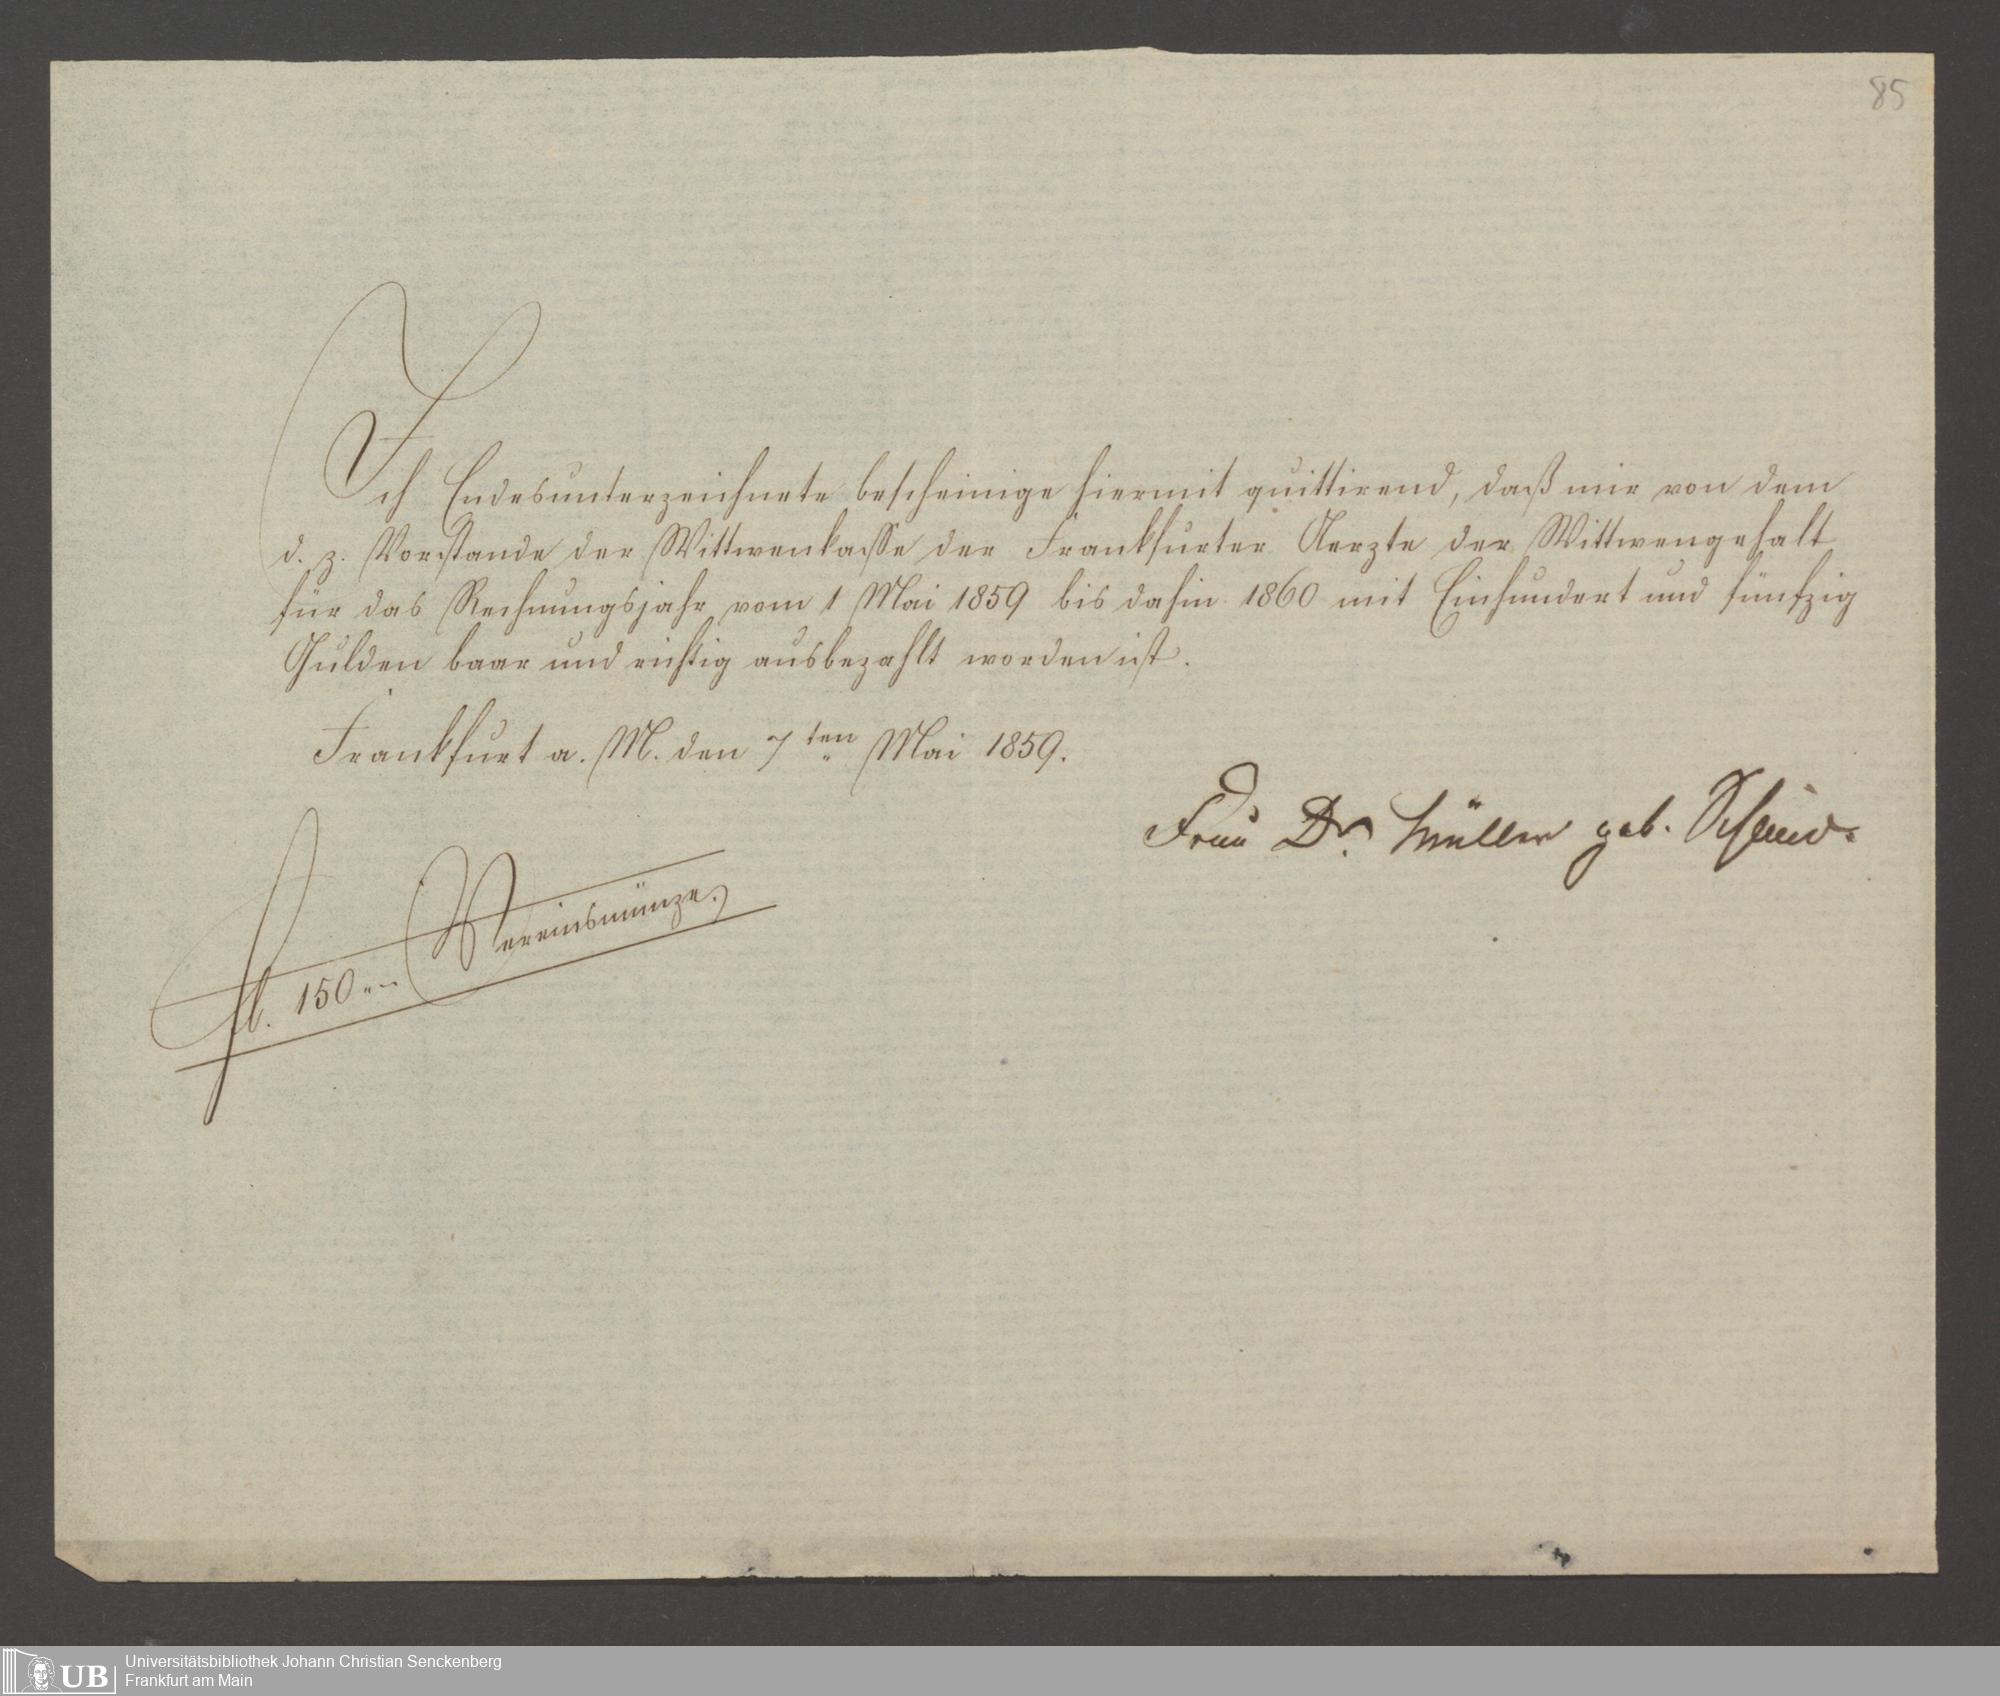 85
Ich Endesunterzeichnete bescheinige hiermit quittirend, daß mir von dem
d. z. Vorstande der Wittwenkasse der Frankfurter Aerzte der Wittwengehalt
für das Rechnungsjahr vom 1 Mai 1859 bis dahin 1860 mit Einhundert und fünfzig
Gulden baar und richtig ausbezahlt worden ist.
Frankfurt a. M. den 7ten Mai 1859.
Frau Dr. Müller geb.
fl. 150 „ ~ Vereinsmünze.
UB Universitätsbibliothek Johann Christian Senckenberg
Frankfurt am Main